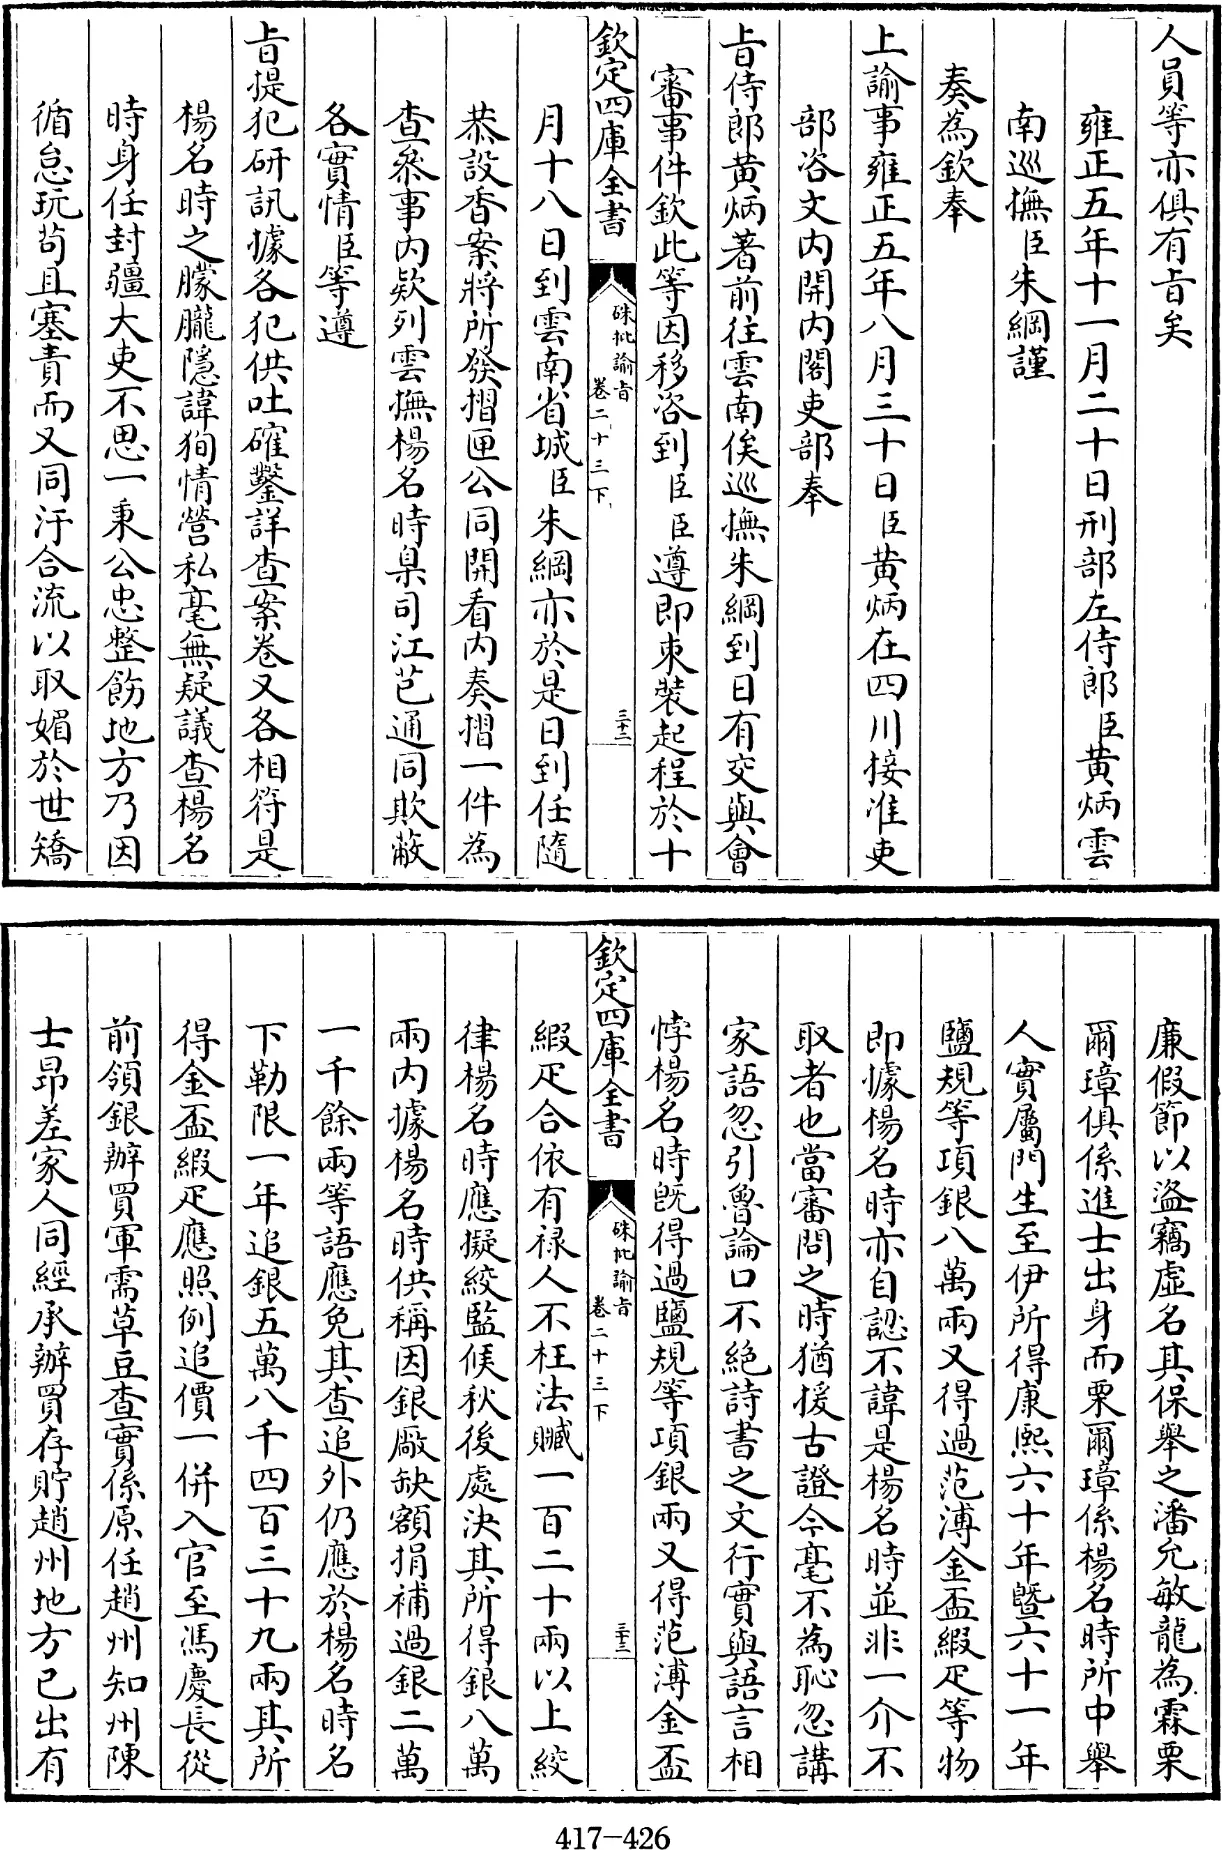 人員等亦俱有旨矣
雍正五年十一月二十日刑部左侍郎臣黄炳雲
南巡撫臣朱綱謹
奏為欽奉
上諭事雍正五年八月三十日臣黄炳在四川接准吏
部咨文内開内閣吏部奉
旨侍郎黄炳著前往雲南俟巡撫朱綱到日有交與會
審事件欽此等因移咨到臣臣遵即束裝起程於十
欽定四庫全書
硃批諭旨
卷二十三下
三十二
月十八日到雲南省城臣朱綱亦於是日到任隨
恭設香案將所發摺匣公同開看内奏摺一件為
查叅事内欵列雲撫楊名時臬司江芑通同欺蔽
各實情臣等遵
旨提犯研訊據各犯供吐確鑿詳查案卷又各相符是
楊名時之朦朧隱諱狥情營私毫無疑議查楊名
時身任封疆大吏不思一秉公忠整飭地方乃因
循怠玩茍且塞責而又同汙合流以取媚於世矯
廉假節以盗竊虚名其保舉之潘允敏龍為霖栗
爾璋俱係進士出身而栗爾璋係楊名時所中舉
人實屬門生至伊所得康熙六十年暨六十一年
鹽規等項銀八萬兩又得過范溥金盃緞疋等物
即據楊名時亦自認不諱是楊名時並非一介不
取者也當審問之時猶援古證今毫不為恥忽講
家語忽引魯論口不絶詩書之文行實與語言相
悖楊名時既得過鹽規等項銀兩又得范溥金盃
欽定四庫全書
硃批諭旨
卷二十三下
三十三
緞疋合依有禄人不枉法贓一百二十兩以上絞
律楊名時應擬絞監候秋後處決其所得銀八萬
兩内據楊名時供稱因銀廠缺額捐補過銀二萬
一千餘兩等語應免其查追外仍應於楊名時名
下勒限一年追銀五萬八千四百三十九兩其所
得金盃緞疋應照例追價一併入官至馮慶長從
前領銀辦買軍需草豆查實係原任趙州知州陳
士昂差家人同經承辦買存貯趙州地方已出有
417-426